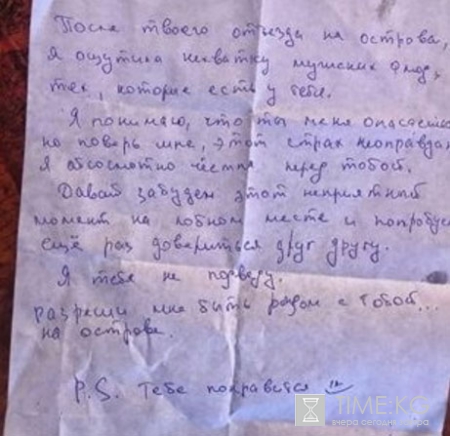 После твоего отъезда на острова,
я ощутила нехватку мужских флюд,
тех, которые есть у тебя.
Я понимаю, что ты меня опасаешь
но поверь мне, этот страх неоправдан
Я абсолютно честна перед тобой.
Давай забудем этот неприятный
момент на лобном месте и попробуе
ещё раз довериться друг другу.
Я тебя не подведу.
разреши мне быть рядом с тобой...
на острове.
P.S. Тебе понравится
TIME.KG
вчера сегодня завтра